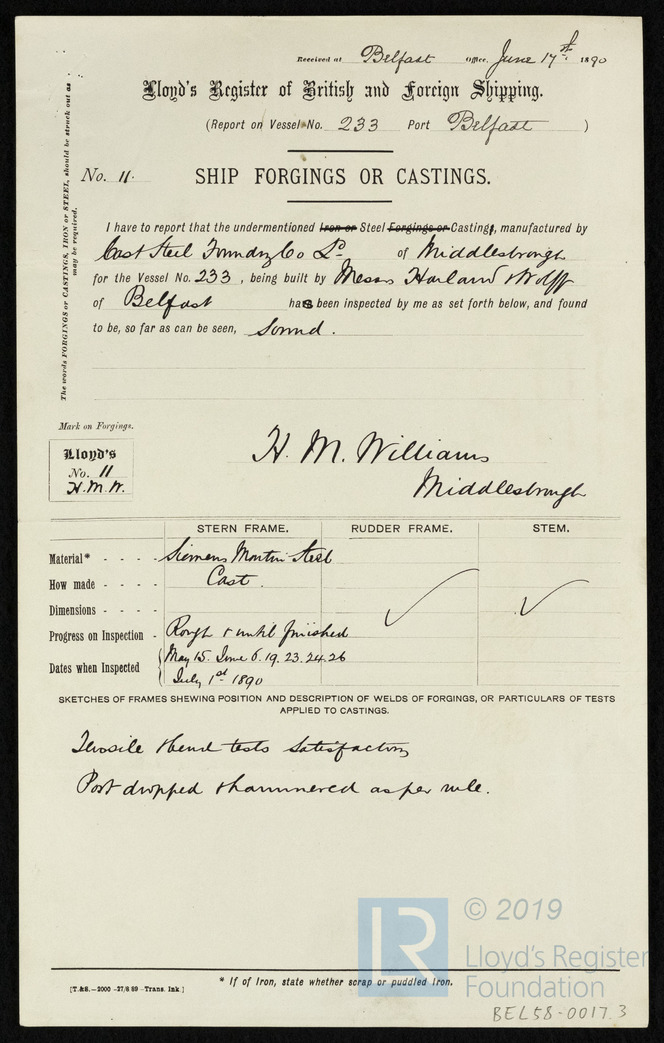 Received at Belfast Office, June 17th 1890
Lloyd's Register of British and Foreign Shipping.
(Report on Vessel No. 233 Port Belfast )
No. 11. SHIP FORGINGS OR CASTINGS.
The words FORGINGS or CASTINGS, IRON or STEEL, should be struck out as
may be required.
I have to report that the undermentioned Iron or Steel Forgings or Castings, manufactured by
Cast Steel Foundry Co Ld of Middlesbrough
for the Vessel No. 233, being built by Messrs Harland & Wolff
of Belfast has been inspected by me as set forth below, and found
to be, so far as can be seen, Sound.
Mark on Forgings.
Lloyd's
No. 11
H.M.W.
H. M. Williams
Middlesbrough
STERN FRAME. RUDDER FRAME. STEM.
Material* - - - - Siemens Martin Steel
How made - - - - Cast.
Dimensions - - - - ✓ ✓
Progress on Inspection - Rough & until finished
Dates when Inspected { May 15. June 6. 19. 23. 24. 26
July 1st 1890
SKETCHES OF FRAMES SHEWING POSITION AND DESCRIPTION OF WELDS OF FORGINGS, OR PARTICULARS OF TESTS
APPLIED TO CASTINGS.
Tensile & bend tests satisfactory
Post dropped & hammered as per rule.
* If of Iron, state whether scrap or puddled Iron.
[T.&S.—2000 -27/8 89 -Trans. Ink.]
LR © 2019
Lloyd's Register
Foundation
BEL58-0017.3